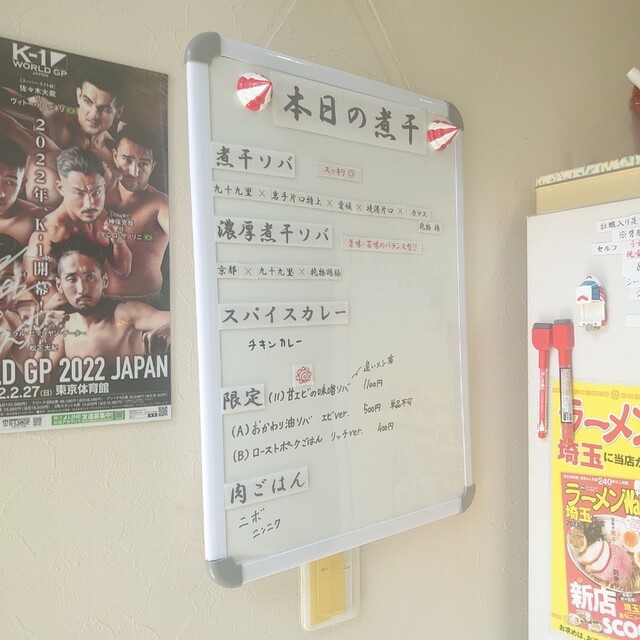 K-1
WORLD GP
JAPAN
佐々木大蔵
2022年K-1開幕
GP 2022 JAPAN
2.27(日) 東京体育館
本日の煮干
煮干ソバ
スッキリ◎
九十九里 × 岩手片口特上 × 愛媛 × 境港片口 × カマス
濃厚煮干ソバ
旨味・苦味のバランス型!!
京都 × 九十九里 ×
スパイスカレー
チキンカレー
限定 (11) 甘エビの味噌ソバ 1100円
追いメシ有
(A) おかわり油ソバ エビver. 500円 単品不可
(B) ローストポークごはん リッチver. 400円
肉ごはん
ニボ
ニンニク
セルフ
ラーメン
埼玉
に当店が
ラーメンWa
埼玉
新店